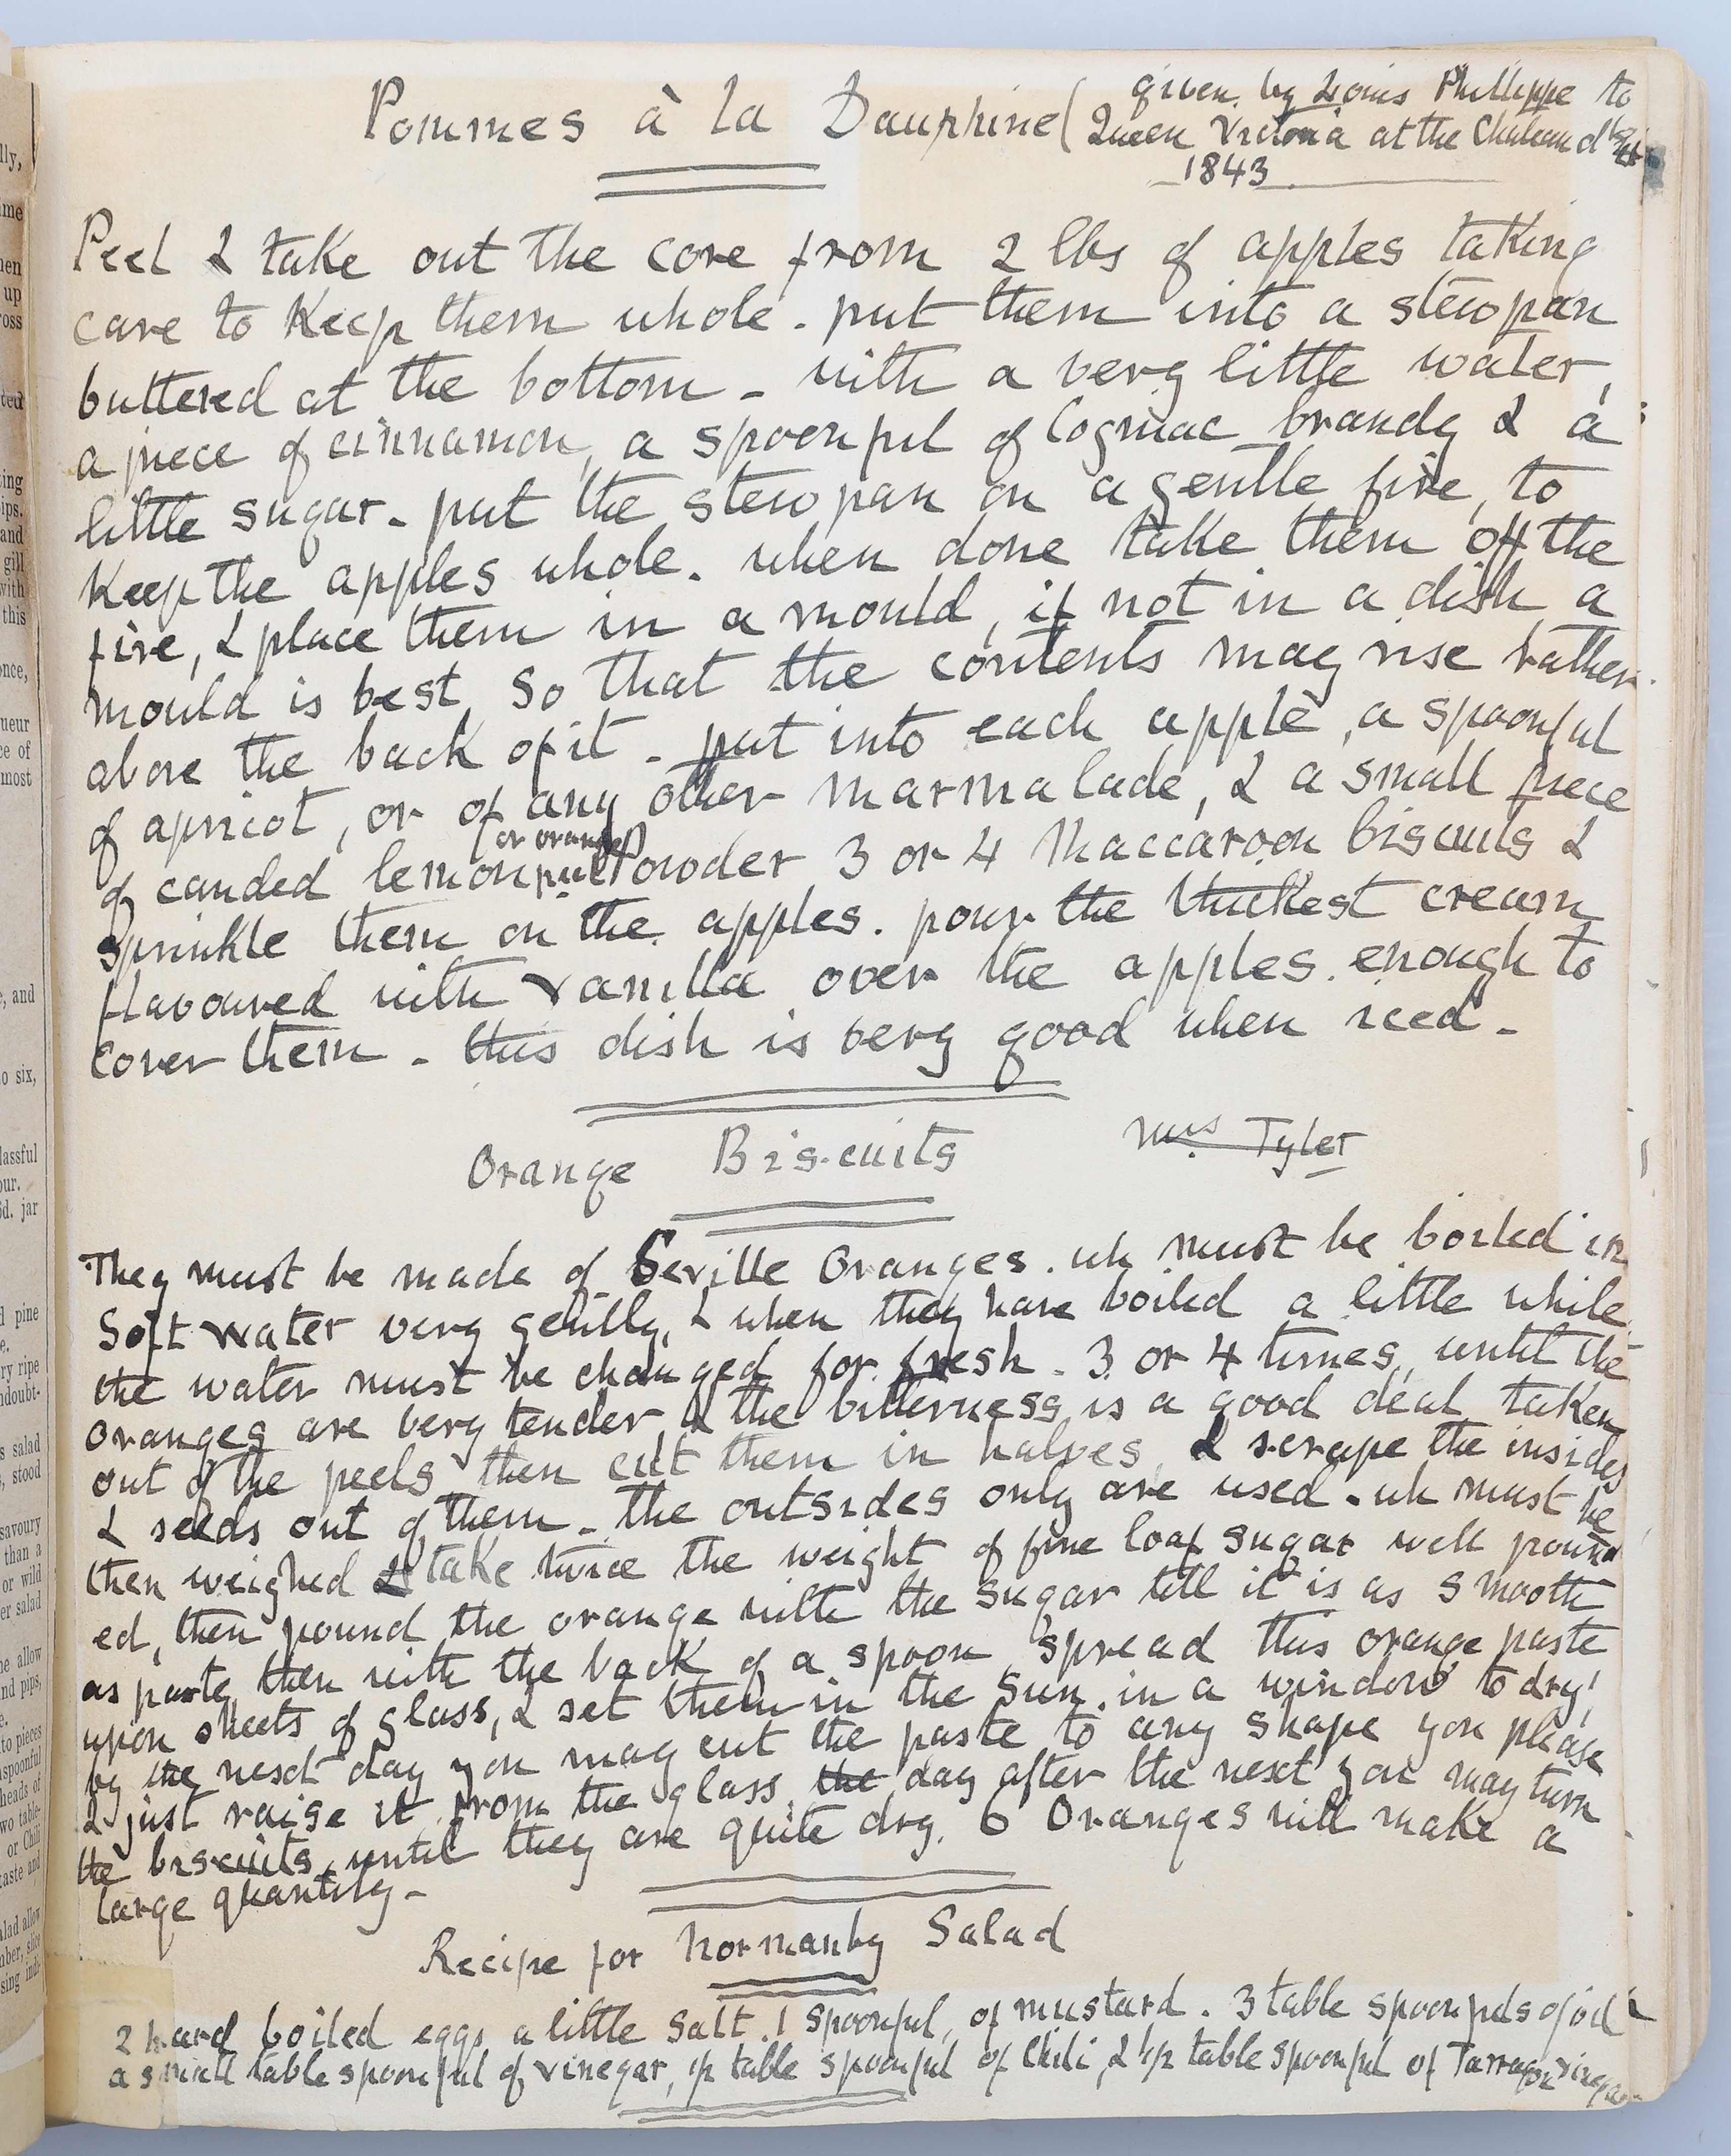 Pommes à la Dauphine (given by Louis Phillippe to
Queen Victoria at the Chateau d'Eu
1843
Peel & take out the core from 2 lbs of apples taking
care to keep them whole. put them into a stewpan
buttered at the bottom - with a very little water,
a piece of cinnamon, a spoonful of Cogniac brandy & a
little sugar. put the stewpan on a gentle fire, to
keep the apples whole. when done take them off the
fire, & place them in a mould, if not in a dish a
mould is best so that the contents may rise rather
above the back of it - put into each apple, a spoonful
of apricot, or of any other marmalade, & a small piece
(or orange)
of candied lemon peel Powder 3 or 4 Maccaroon biscuits &
sprinkle them on the apples. pour the thickest cream
flavoured with vanilla over the apples. enough to
cover them - this dish is very good when iced -
Orange Biscuits Mrs Tyler
They must be made of Seville Oranges. wh must be boiled in
Soft water very gently, & when they have boiled a little while
the water must be changed for fresh - 3 or 4 times, until the
oranges are very tender, & the bitterness is a good deal taken
out of the peels then cut them in halves & scrape the insides
& seeds out of them - the outsides only are used - wh must be
then weighed & take twice the weight of fine loaf sugar well pound
ed, then pound the orange with the sugar till it is as smooth
as paste, then with the back of a spoon spread this orange paste
upon sheets of glass, & set them in the sun. in a window to dry,
by the next day you may cut the paste to any shape you please
& just raise it from the glass, the day after the next you may turn
the biscuits, until they are quite dry. 6 Oranges will make a
large quantity -
Recipe for Normanby Salad
2 hard boiled eggs a little Salt. 1 spoonful, of mustard. 3 table spoonfuls of oil
a small table spoonful of vinegar, 1/2 table spoonful of Chili, & 1/2 table spoonful of Tarragon vinegar